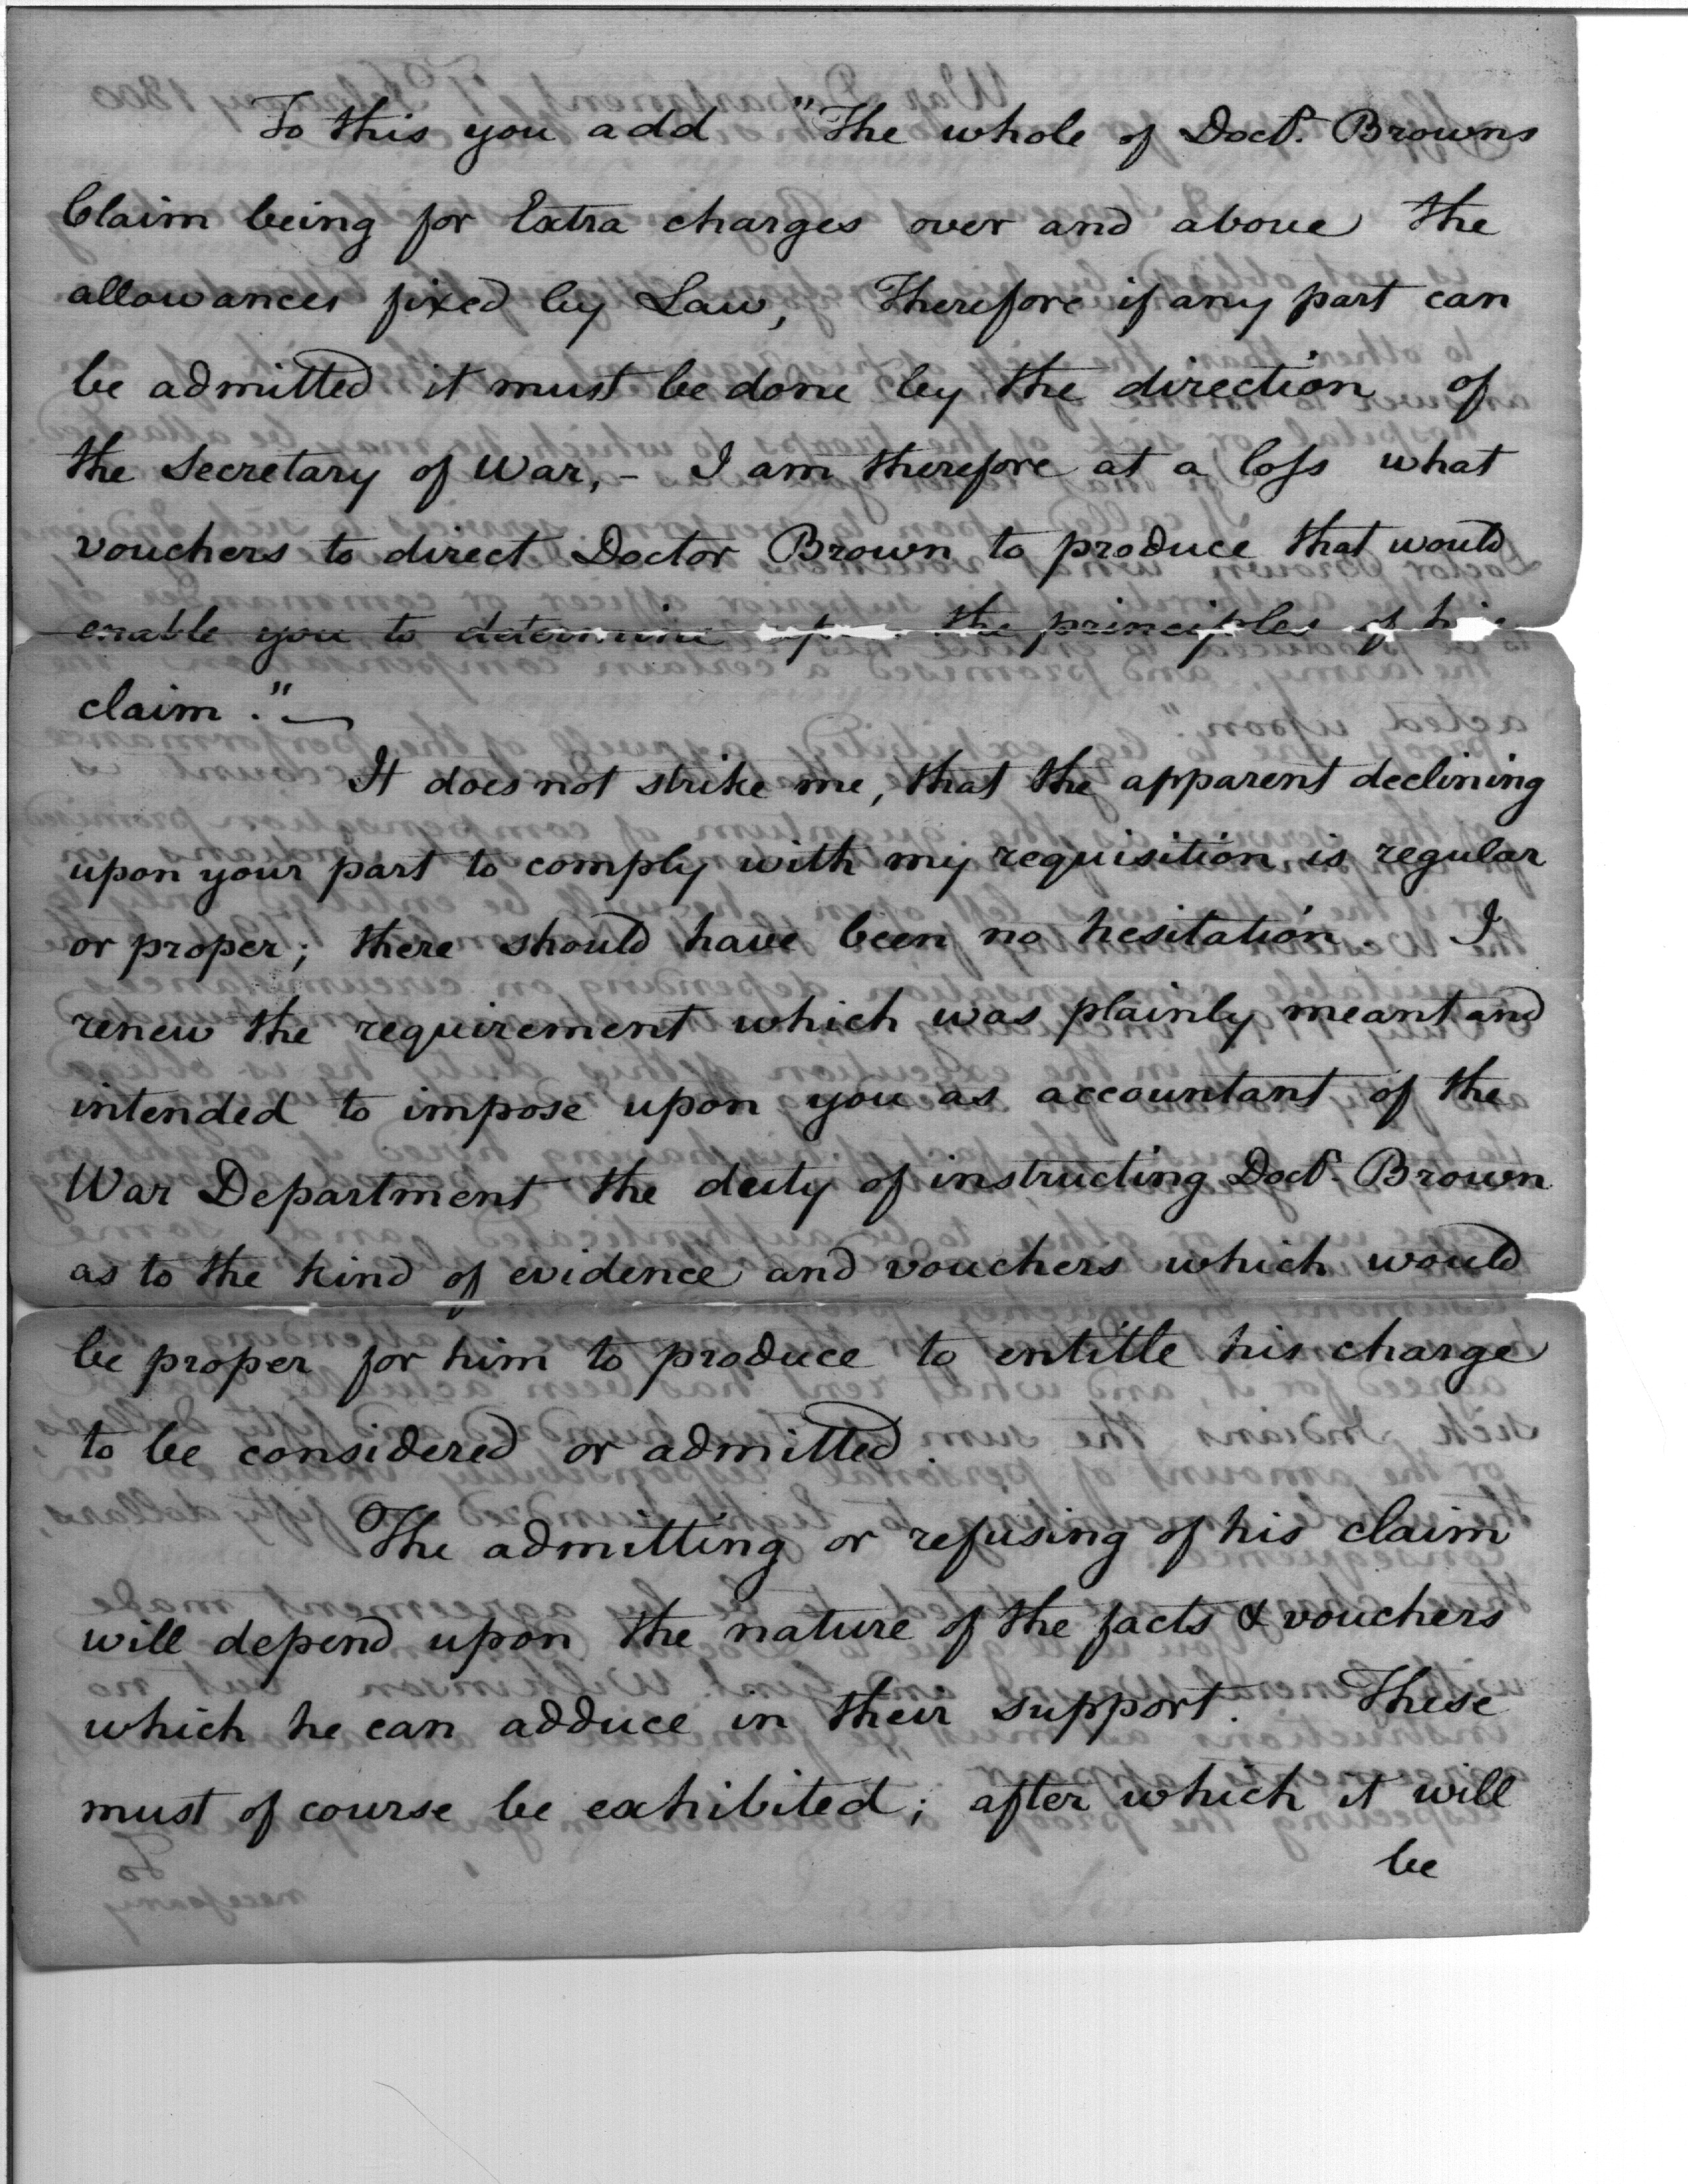 To this you add "The whole of Doct. Browns
Claim being for Extra charges over and above the
allowances fixed by Law, Therefore if any part can
be admitted it must be done by the direction of
the Secretary of War, - I am therefore at a loss what
vouchers to direct Doctor Brown to produce that would
enable you to determine upon the principles of his
claim." —
It does not strike me, that the apparent declining
upon your part to comply with my requisition, is regular
or proper; there should have been no hesitation. I
renew the requirement which was plainly meant and
intended to impose upon you as accountant of the
War Department the duty of instructing Doct. Brown
as to the kind of evidence and vouchers which would
be proper for him to produce to entitle his charge
to be considered or admitted.
The admitting or refusing of his claim
will depend upon the nature of the facts & vouchers
which he can adduce in their support. These
must of course be exhibited; after which it will
be